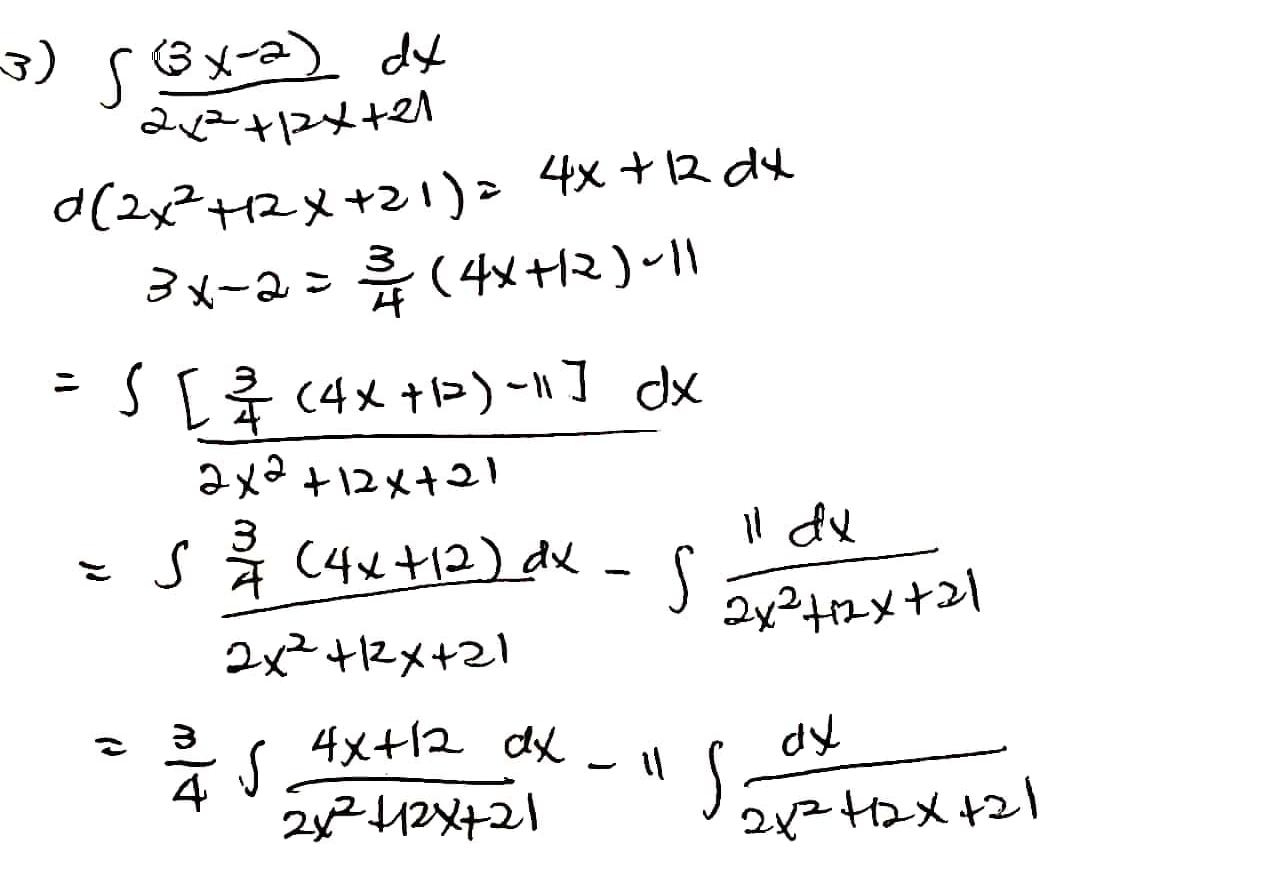 3) ∫ (3x-2) dx / 2x²+12x+21
d(2x²+12x+21) = 4x+12 dx
3x-2 = 3/4 (4x+12)-11
= ∫ [3/4 (4x+12)-11] dx / 2x²+12x+21
= ∫ 3/4 (4x+12) dx / 2x²+12x+21 - ∫ 11 dx / 2x²+12x+21
= 3/4 ∫ 4x+12 dx / 2x²+12x+21 - 11 ∫ dx / 2x²+12x+21